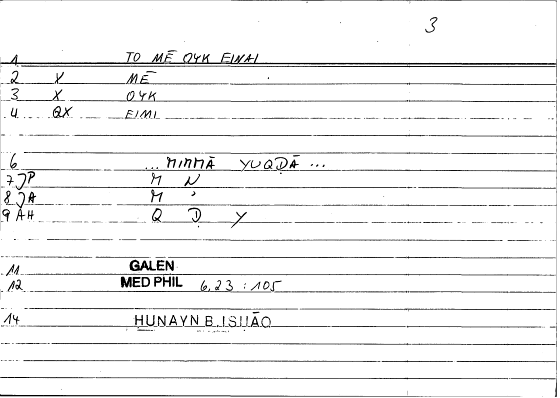 3
1 TO MĒ OYK EINAI
2 X MĒ
3 X OYK
4 QX EIMI
6 ... MIMMĀ YUQDĀ ...
7 JP M N
8 JA M
9 AH Q D Y
11 GALEN
12 MED PHIL 6,23 : 105
14 HUNAYN B. ISḤĀQ